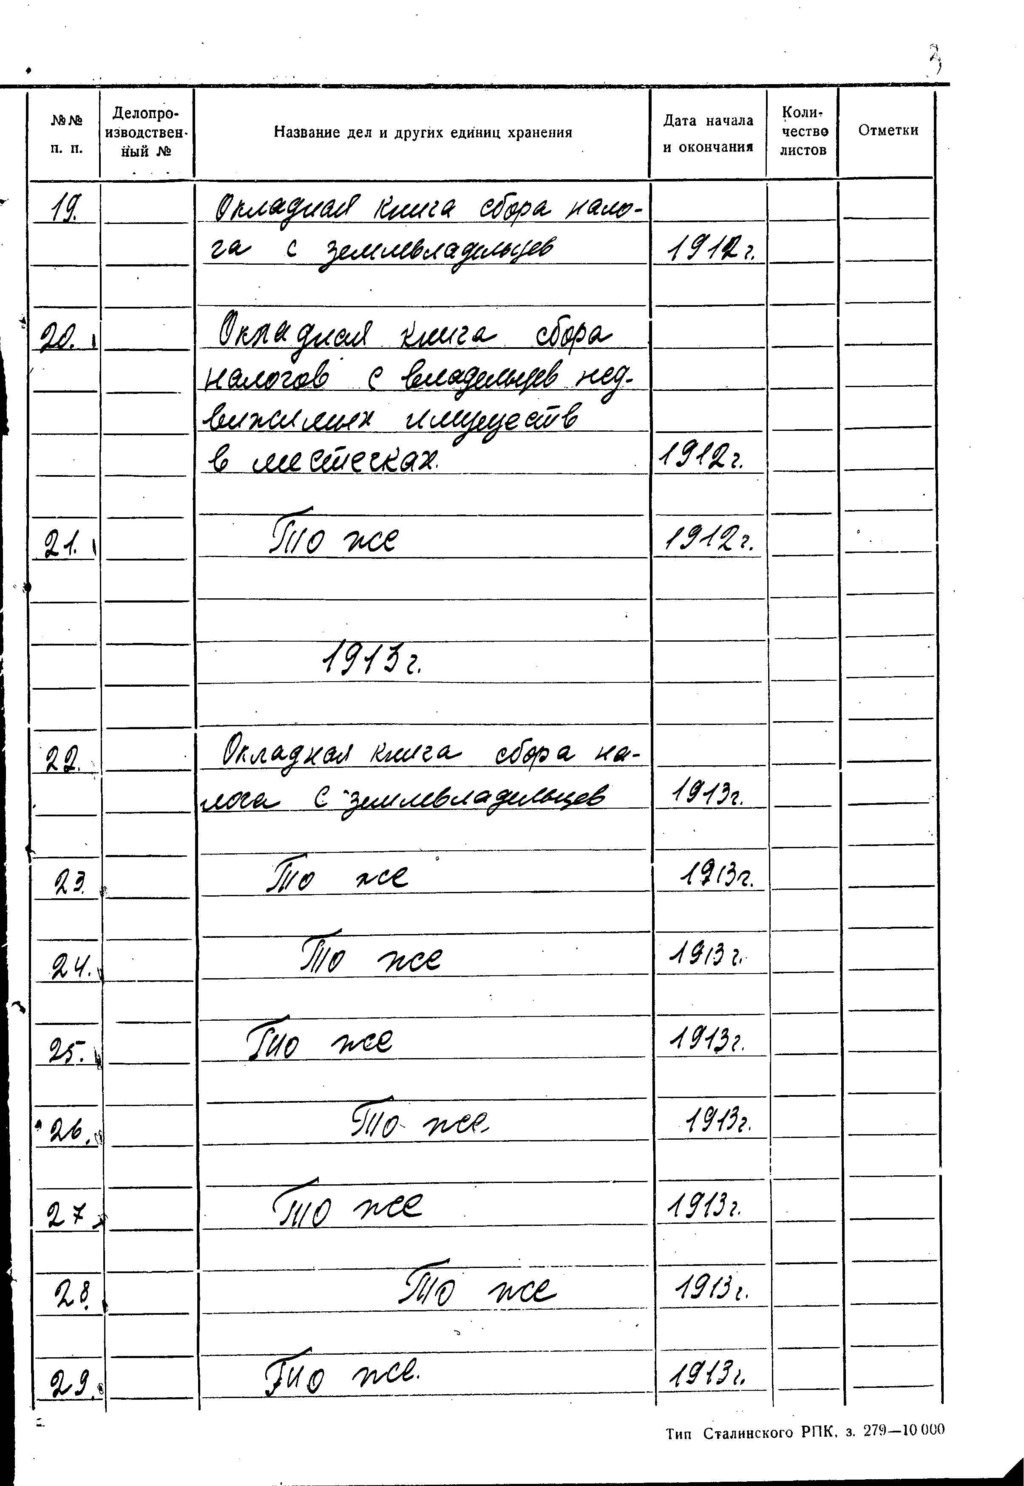 3
№№ п. п. Делопро-изводствен-ный № Название дел и других единиц хранения Дата начала и окончания Коли-чество листов Отметки
19. Окладная книга сбора нало-
га с землевладельцев 1912 г.
20. Окладная книга сбора
налогов с владельцев нед-
вижимых имуществ
в местечках. 1912 г.
21. То же 1912 г.
1913 г.
22. Окладная книга сбора на-
лога с землевладельцев 1913 г.
23. То же 1913 г.
24. То же 1913 г.
25. То же 1913 г.
26. То же. 1913 г.
27. То же 1913 г.
28. То же 1913 г.
29. То же. 1913 г.
Тип Сталинского РПК. з. 279—10 000